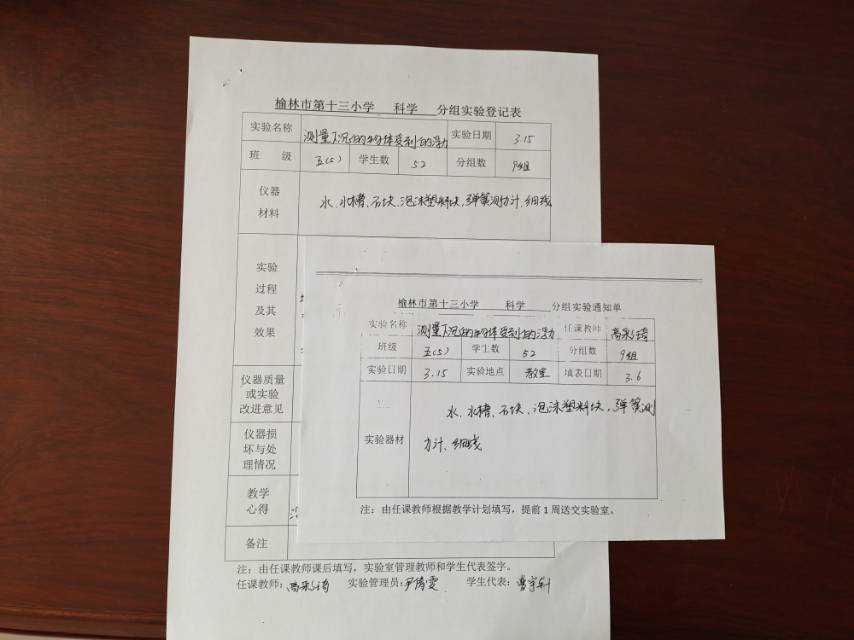 榆林市第十三小学 科学 分组实验登记表
实验名称 测量下沉的物体受到的浮力 实验日期 3.15
班 级 五(5) 学生数 52 分组数 9组
仪器材料 水、水槽、石块、泡沫塑料块、弹簧测力计、细线
实验过程及其效果
仪器质量或实验改进意见
仪器损坏与处理情况
教学心得
备注
注：由任课教师课后填写，实验室管理教师和学生代表签字。
任课教师： 实验管理员： 学生代表：
榆林市第十三小学 科学 分组实验通知单
实验名称 测量下沉的物体受到的浮力 任课教师
班级 五(5) 学生数 52 分组数 9组
实验日期 3.15 实验地点 教室 填表日期 3.6
实验器材 水、水槽、石块、泡沫塑料块、弹簧测
力计、细线
注：由任课教师根据教学计划填写，提前1周送交实验室。